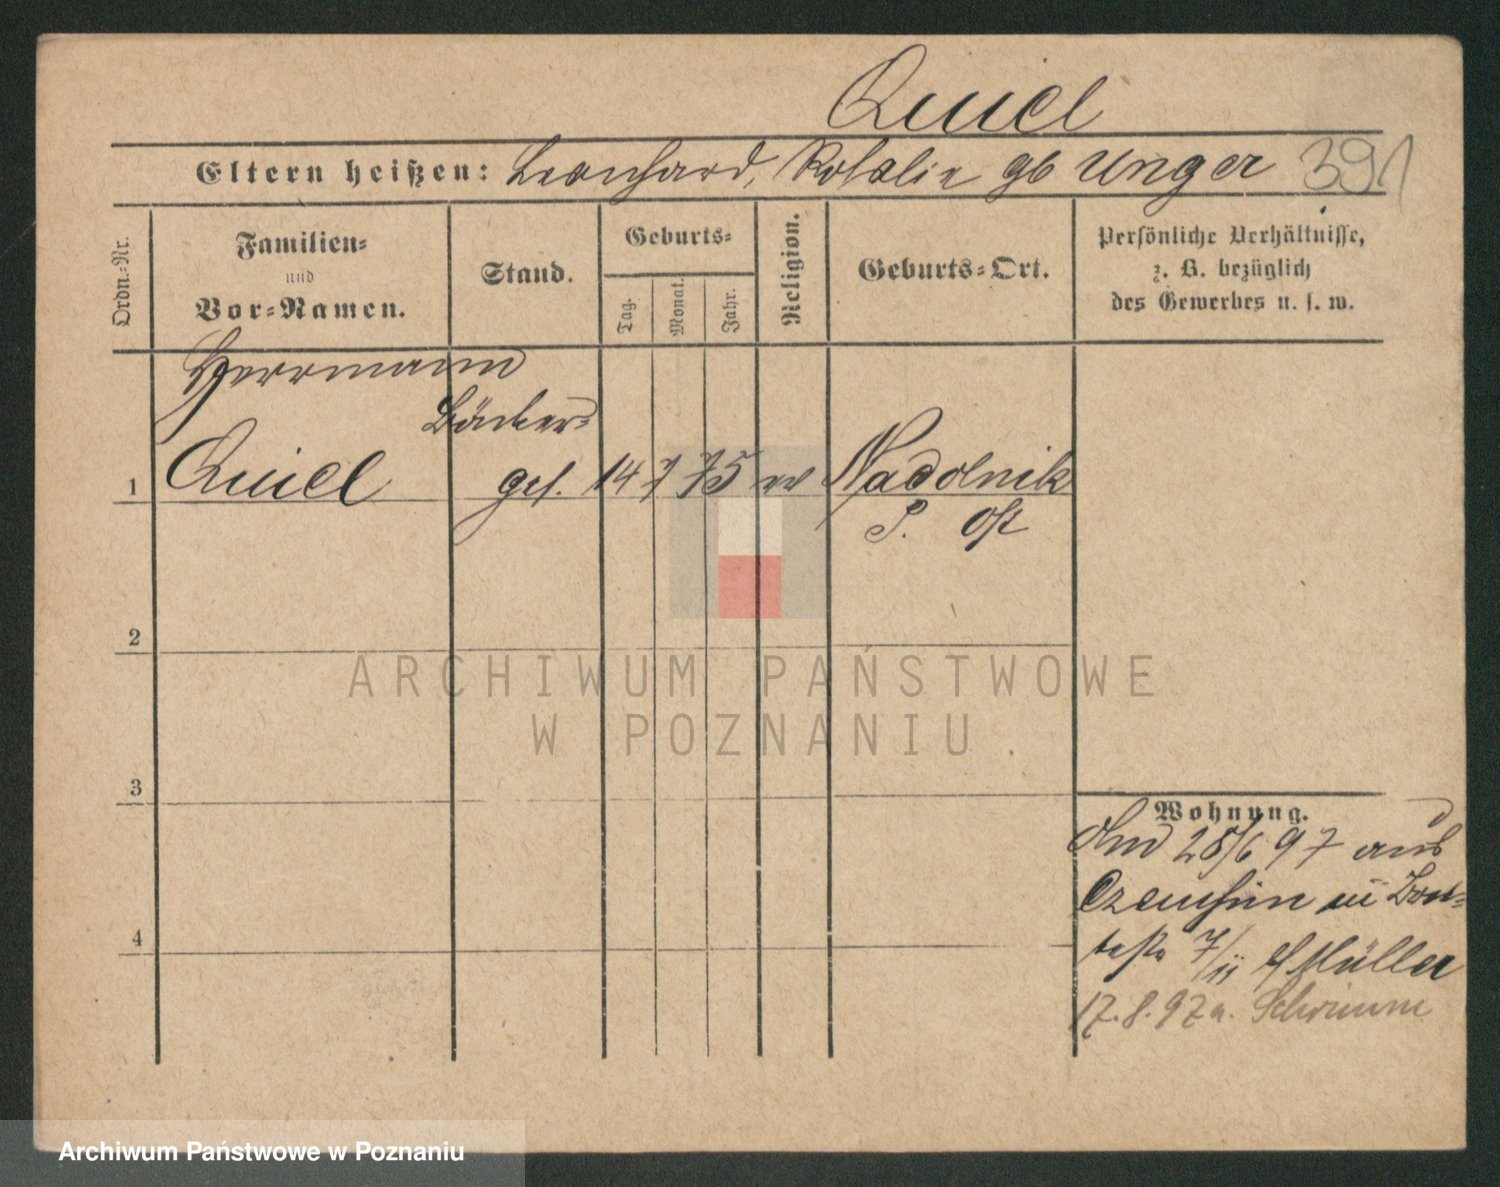 Quiel
Eltern heißen: Leonhard, Rosalie gb Unger 391
Ordn.-Nr.
Familien-
und
Vor-Namen.
Stand.
Geburts-
Tag.
Monat.
Jahr.
Religion.
Geburts-Ort.
Persönliche Verhältnisse,
z. B. bezüglich
des Gewerbes u. s. w.
Herrmann
Bäcker-
1 Quiel ges. 14 7 75 ev Nadolnik
P. Ost
2
3
4
Wohnung.
28/6 97 aus
in
7/11 Müller
17.8.97 n. Schrimm
ARCHIWUM PAŃSTWOWE
W POZNANIU
Archiwum Państwowe w Poznaniu